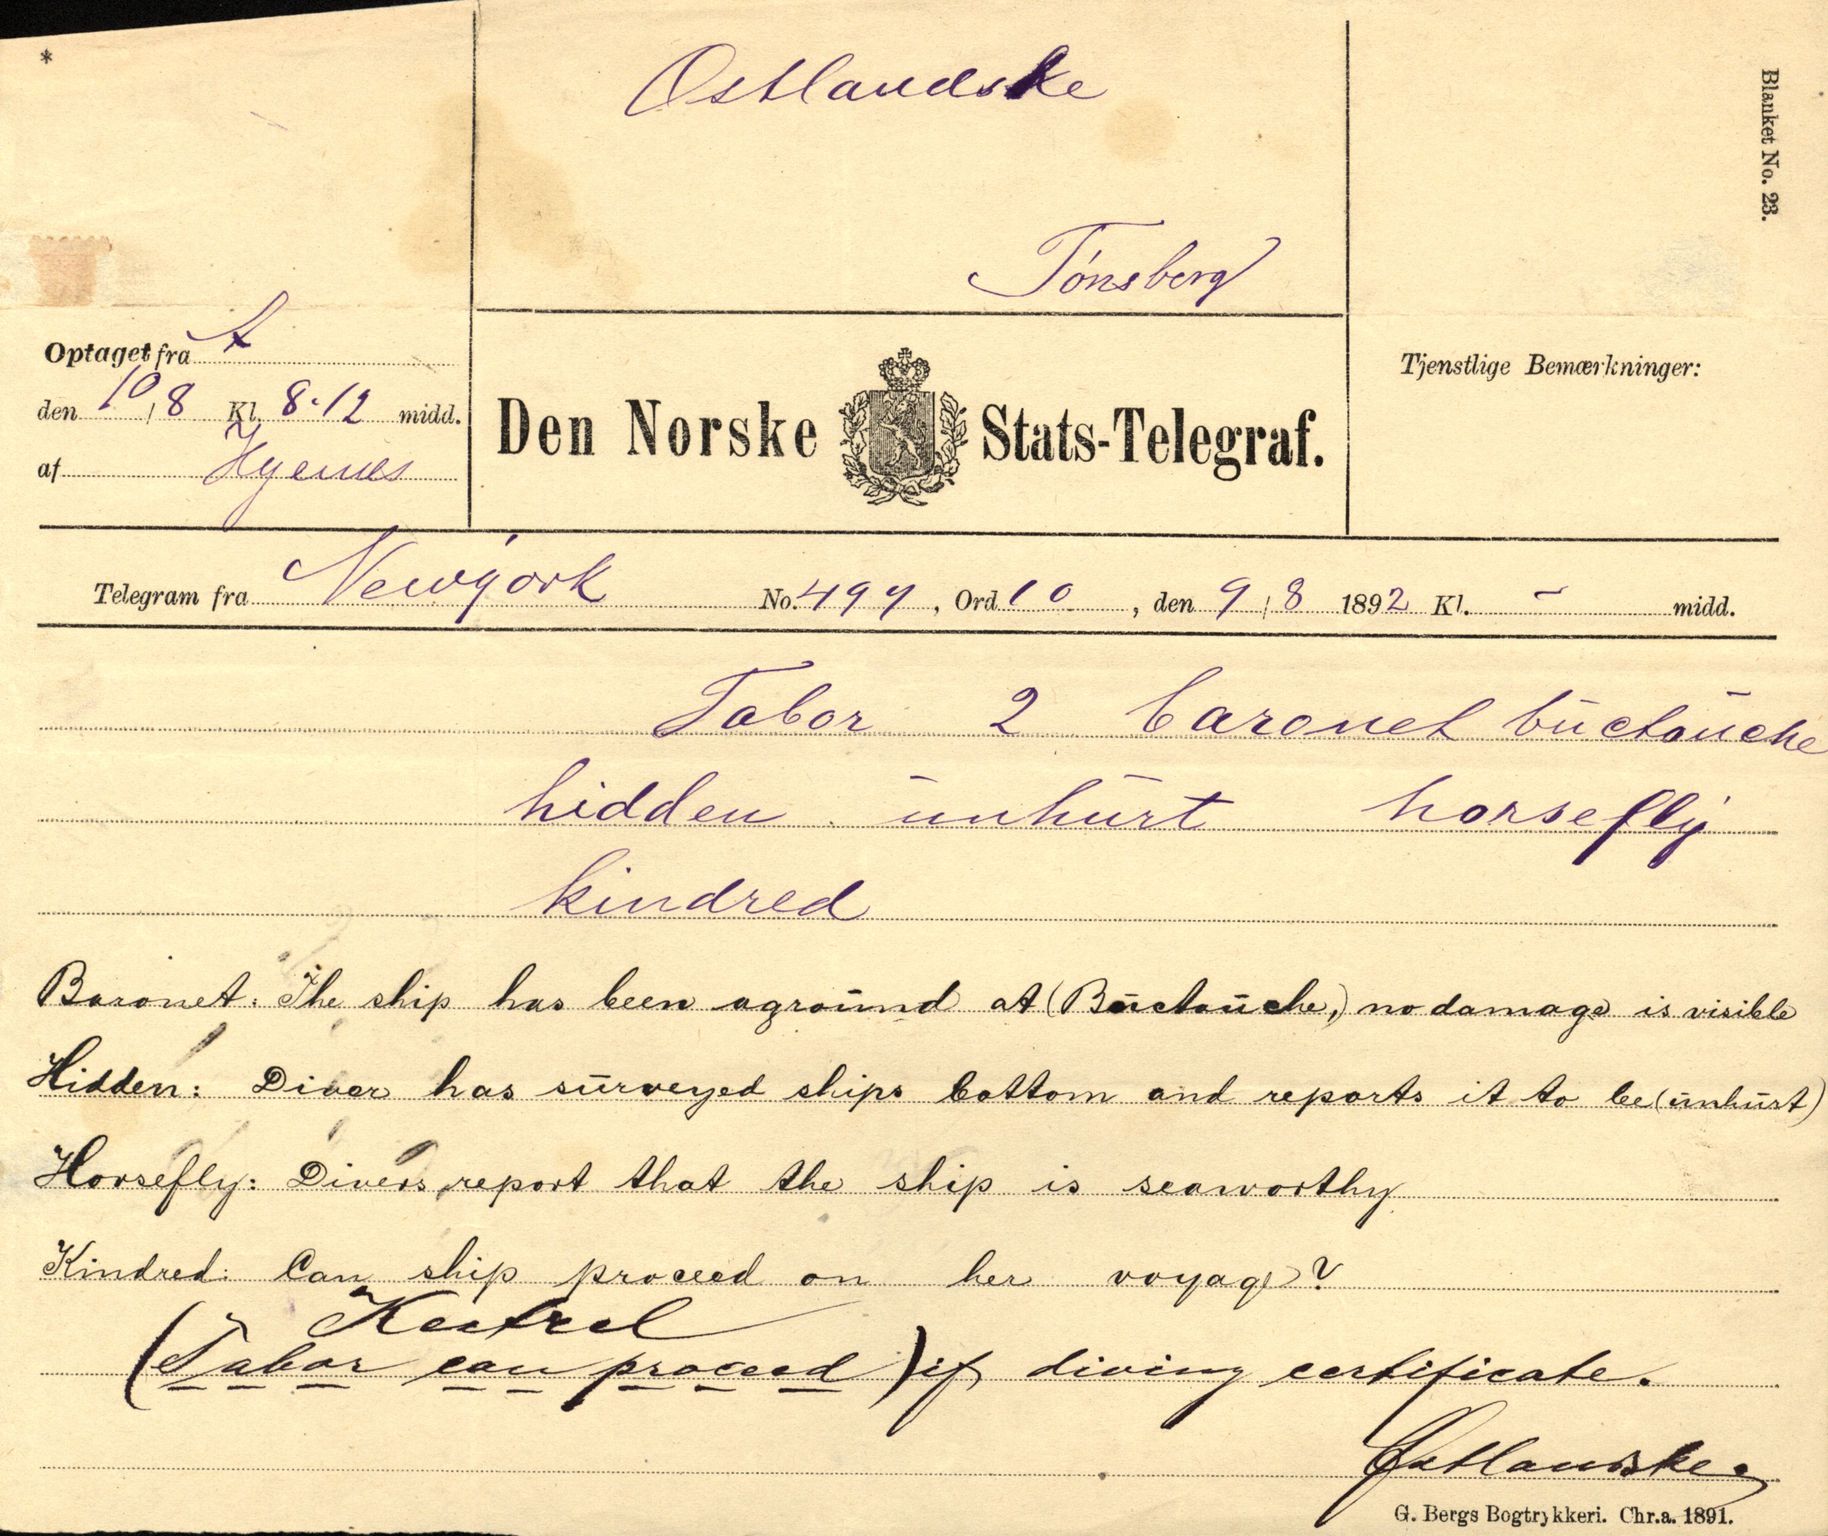 *
Ostlandske
Tønsberg
Blanket No. 23.
Optaget fra A
den 10/8 Kl. 8.12 midd.
af
Den Norske Stats-Telegraf.
Tjenstlige Bemærkninger:
Telegram fra Newyork No. 497, Ord 10, den 9/8 1892 Kl. - midd.
Tabor 2 baronet būctoūche
hidden ūnhūrt horsefly
kindred
Baronet: The ship has been agroūnd at (Būctoūche,) no damage is visible
Hidden: Diver has sūrveyed ships bottom and reports it to be (ūnhūrt)
Horsefly: Divers report that the ship is seaworthy
Kindred: Can ship proceed on her voyage?
Kestrel
(Tabor can proceed) if diving certificate.
Østlandske.
G. Bergs Bogtrykkeri. Chr.a. 1891.